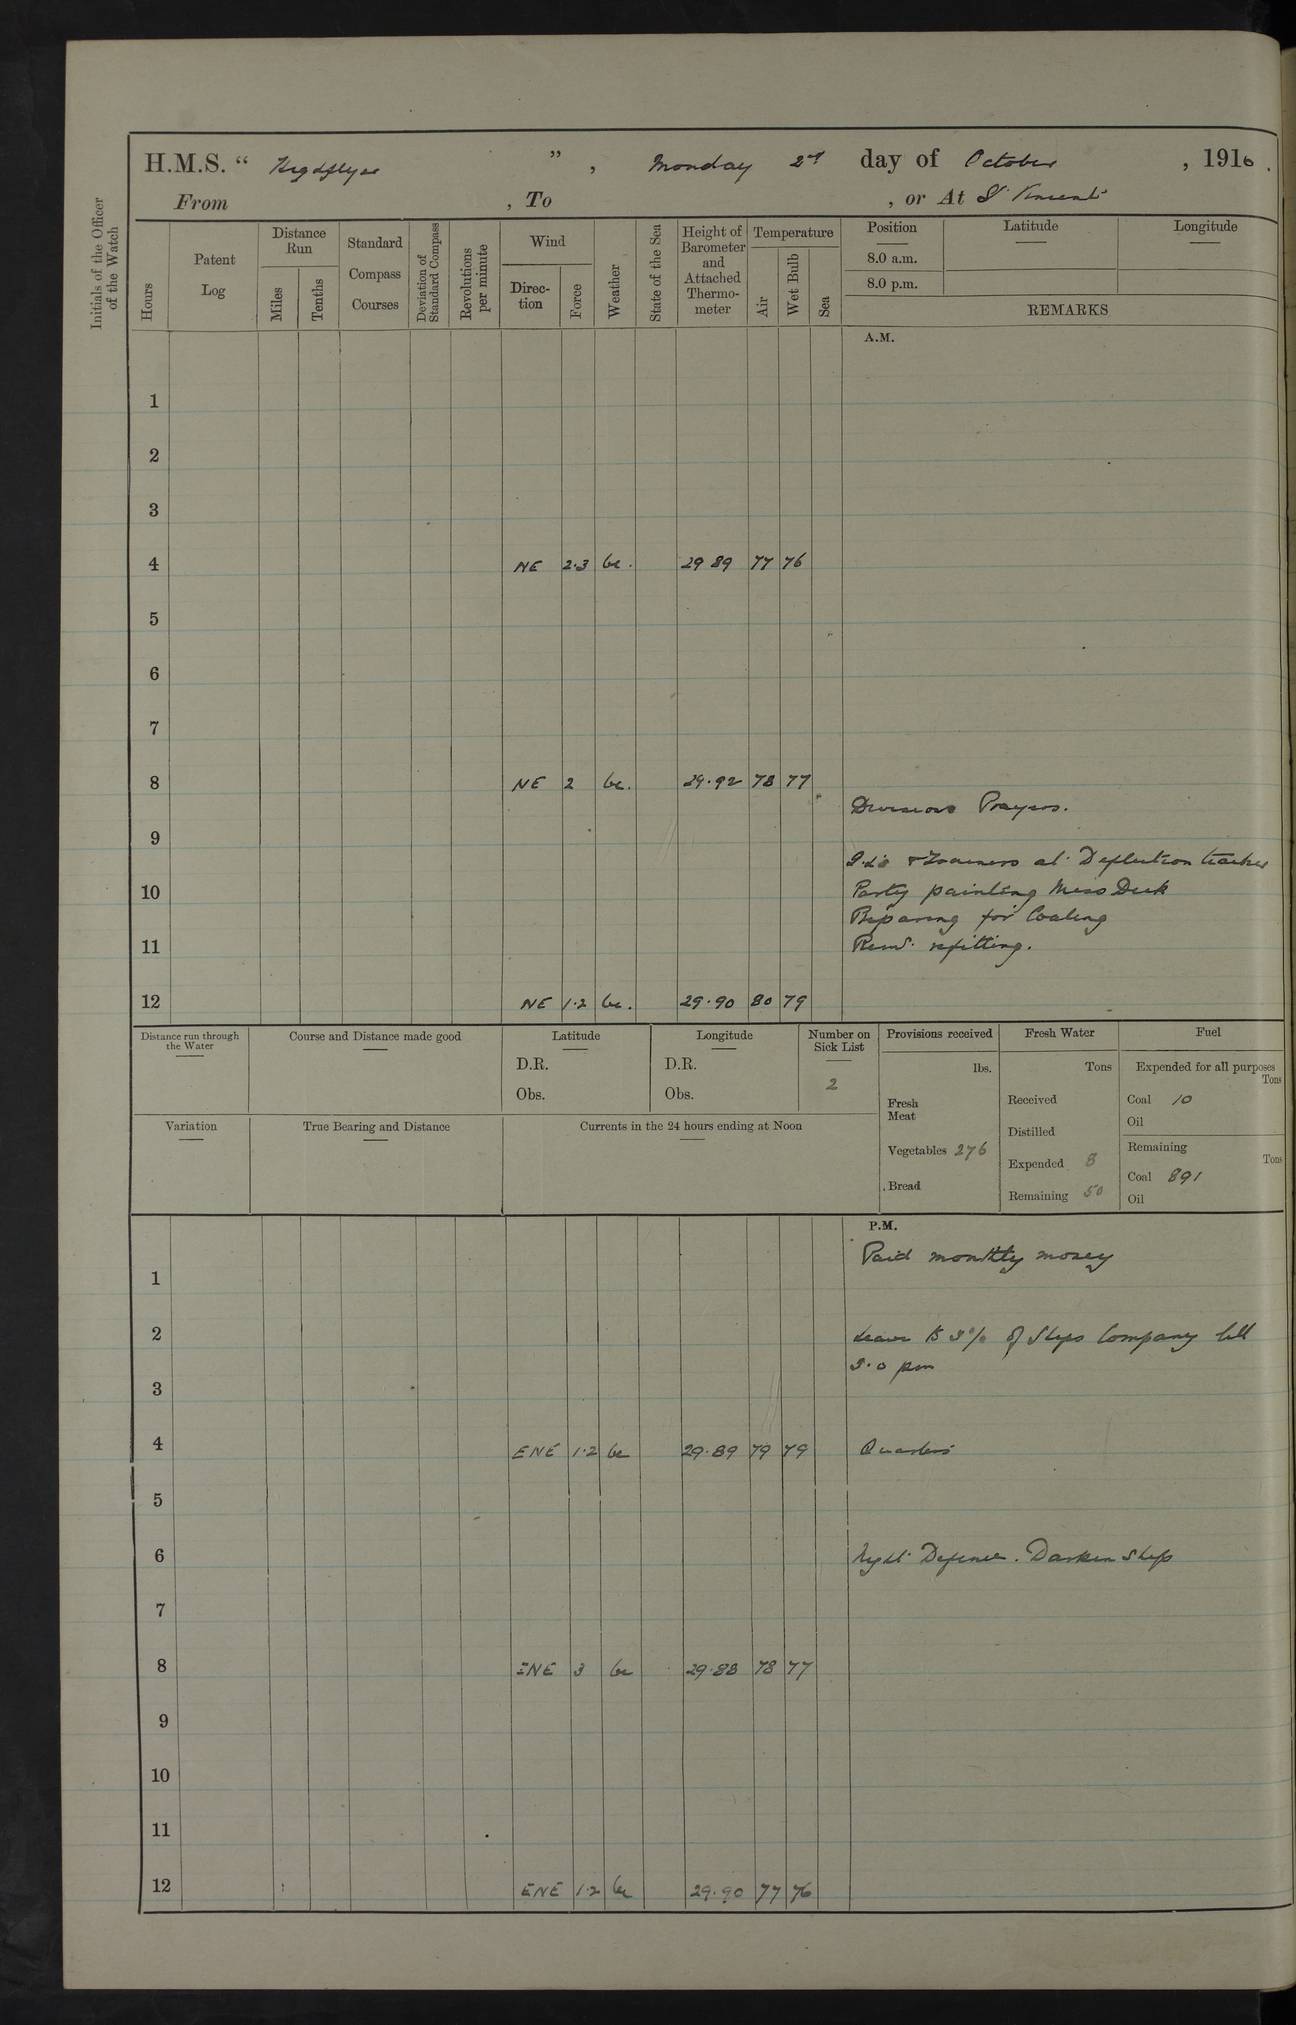 H.M.S. “ Highflyer ” , Monday 2nd day of October , 1916 .
From , To , or At St Vincent
Initials of the Officer of the Watch
Hours
Patent Log
Distance Run
Miles
Tenths
Standard Compass Courses
Deviation of Standard Compass
Revolutions per minute
Wind
Direc-tion
Force
Weather
State of the Sea
Height of Barometer and Attached Thermo-meter
Temperature
Air
Wet Bulb
Sea
Position
8.0 a.m.
8.0 p.m.
Latitude
Longitude
REMARKS
A.M.
1
2
3
4 NE 2·3 bc. 29 89 77 76
5
6
7
8 NE 2 bc. 29·92 78 77
Divisions Prayers.
9
& Trainers at Deflection teacher
10 Party painting Mess Deck
Preparing for Coaling
11 Remd. refitting.
12 NE 1·2 bc. 29·90 80 79
Distance run through the Water
Course and Distance made good
Latitude
D.R.
Obs.
Longitude
D.R.
Obs.
Number on Sick List
2
Provisions received
lbs.
Fresh Meat
Vegetables 276
Bread
Fresh Water
Tons
Received
Distilled
Expended 8
Remaining 50
Fuel
Expended for all purposes
Tons
Coal 10
Oil
Remaining
Tons
Coal 891
Oil
Variation
True Bearing and Distance
Currents in the 24 hours ending at Noon
P.M.
Paid monthly money
1
2 Leave to % of Ships Company till
9·0 pm
3
4 ENE 1·2 bc 29·89 79 79 Quarters
5
6 Night Defence. Darken Ship
7
8 ENE 3 bc 29·88 78 77
9
10
11
12 ENE 1·2 bc 29·90 77 76